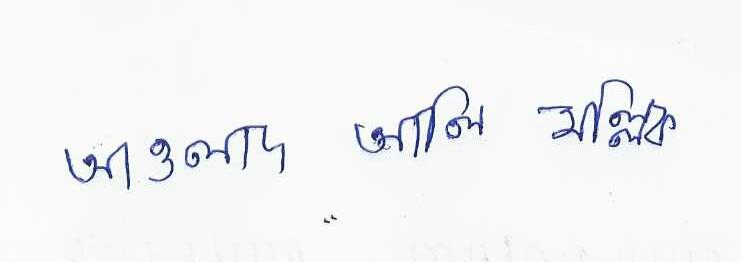 আওলাদ আলি মল্লিক